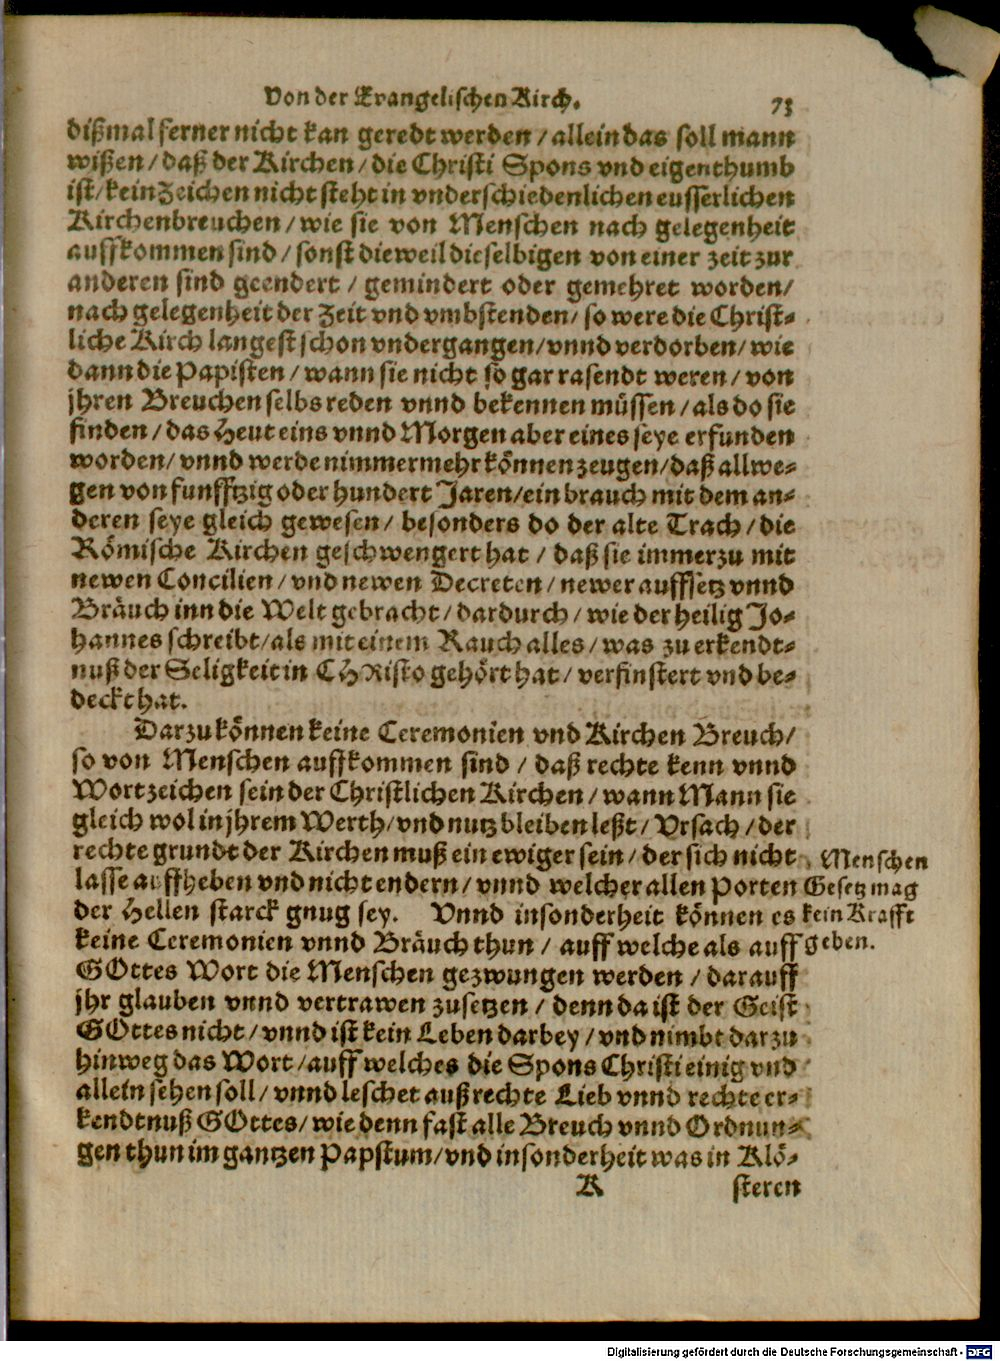 Von der Evangelischen Kirch. 73
dißmal ferner nicht kan geredt werden / allein das soll mann
wißen / daß der Kirchen / die Christi Spons vnd eigenthumb
ist / kein Zeichen nicht steht in vnderschiedenlichen eusserlichen
Kirchenbreuchen / wie sie von Menschen nach gelegenheit
auffkommen sind / sonst dieweil dieselbigen von einer zeit zur
anderen sind geendert / gemindert oder gemehret worden /
nach gelegenheit der Zeit vnd vmbstenden / so were die Christ-
liche Kirch langest schon vndergangen / vnnd verdorben / wie
dann die Papisten / wann sie nicht so gar rasendt weren / von
jhren Breuchen selbs reden vnnd bekennen müssen / als do sie
finden / das Heut eins vnnd Morgen aber eines seye erfunden
worden / vnnd werde nimmermehr können zeugen / daß allwe-
gen von funfftzig oder hundert Jaren / ein brauch mit dem an-
deren seye gleich gewesen / besonders do der alte Trach / die
Römische Kirchen geschwengert hat / daß sie immerzu mit
newen Concilien / vnd newen Decreten / newer auffsetz vnnd
Bräuch inn die Welt gebracht / dardurch / wie der heilig Jo-
hannes schreibt / als mit einem Rauch alles / was zu erkendt-
nuß der Seligkeit in CHRisto gehört hat / verfinstert vnd be-
deckt hat.
Darzu können keine Ceremonien vnd Kirchen Breuch /
so von Menschen auffkommen sind / daß rechte kenn vnnd
Wortzeichen sein der Christlichen Kirchen / wann Mann sie
gleich wol in jhrem Werth / vnd nutz bleiben leßt / Vrsach / der
rechte grundt der Kirchen muß ein ewiger sein / der sich nicht
lasse auffheben vnd nicht endern / vnnd welcher allen Porten
der Hellen starck gnug sey. Vnnd insonderheit können es
keine Ceremonien vnnd Bräuch thun / auff welche als auff
GOttes Wort die Menschen gezwungen werden / darauff
jhr glauben vnnd vertrawen zusetzen / denn da ist der Geist
GOttes nicht / vnnd ist kein Leben darbey / vnd nimbt darzu
hinweg das Wort / auff welches die Spons Christi einig vnd
allein sehen soll / vnnd leschet auß rechte Lieb vnnd rechte er-
kendtnuß GOttes / wie denn fast alle Breuch vnnd Ordnun-
gen thun im gantzen Papstum / vnd insonderheit was in Klö-
K steren
Menschen
Gesetz mag
kein Krafft
geben.
Digitalisierung gefördert durch die Deutsche Forschungsgemeinschaft - DFG